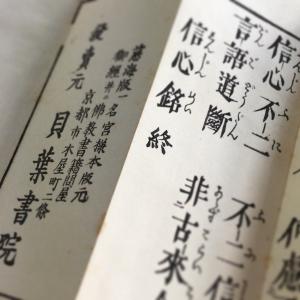 信心不二　不二信
言語道斷　非古來
信心銘　終
慈海版一名宮椽本版元
御經并ニ佛教書籍問屋
京都市木屋町二條
發賣元　貝葉書院